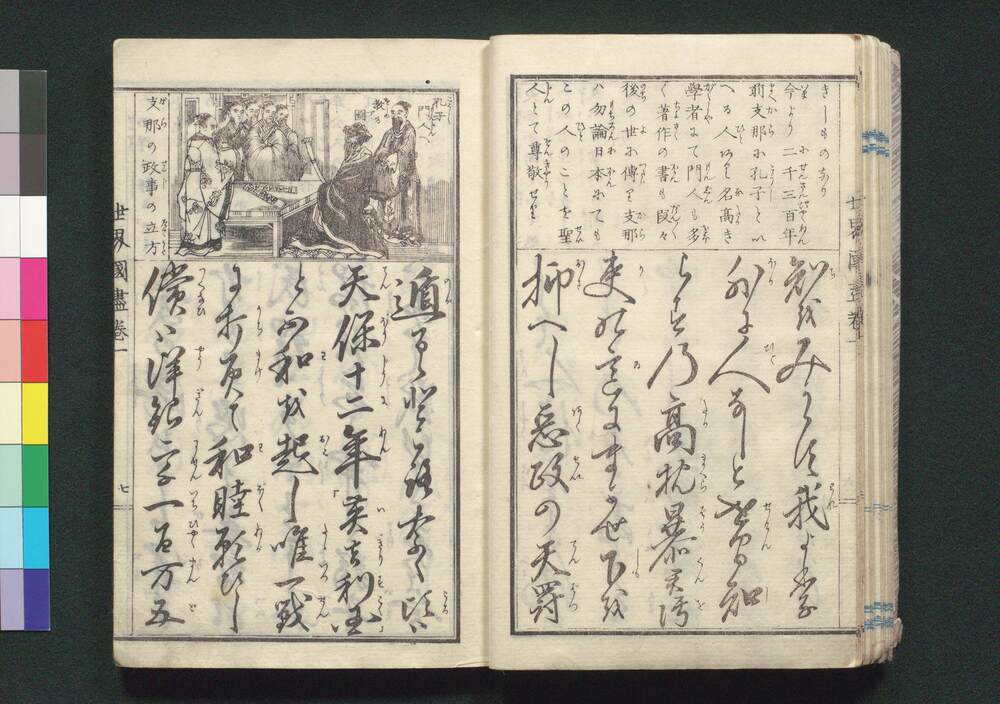 きしものあり
今より二千三百年
前支那に孔子とい
へる人あり名高き
學者にて門人も多
く著作の書も段々
後の世に傳り支那
ハ勿論日本にても
この人のことを聖
人とて尊敬せり
外に人なしと世間知
らずの高枕暴君汚
吏の意にまかせ下を
抑へし悪政の天罰
世界國盡巻一
孔子
門人へ
教る
圖
支那の政事の立方
遁るゝ處なく頃は
天保十二年英吉利国
と不和を起し唯一戦
に打負て和睦願ひし
償は洋銀二千一百万五
世界國盡巻一
七